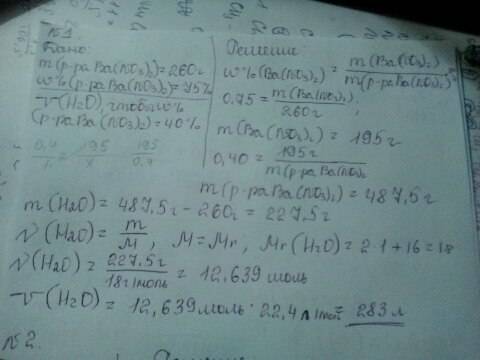 №1.
Дано:
m(р-ра Ba(NO3)2)=260г
w%(р-ра Ba(NO3)2)=75%
V(H2O), чтобы w%
(р-ра Ba(NO3)2)=40%
0,4/1 = 195/x 195/0,4
Решение
w%(Ba(NO3)2) = m(Ba(NO3)2)/m(р-ра Ba(NO3)2)
0.75 = m(Ba(NO3)2)/260г;
m(Ba(NO3)2) = 195г
0,40 = 195г/m(р-ра Ba(NO3)2
m(р-ра Ba(NO3)2) = 487,5г
m(H2O) = 487,5г - 260г = 227,5г
ν(H2O) = m/M, M=Mr, Mr(H2O) = 2·1+16=18
ν(H2O) = 227,5г/18г/моль = 12,639 моль
V(H2O) = 12,639 моль · 22,4 л/моль = 283 л
№2.
Решение